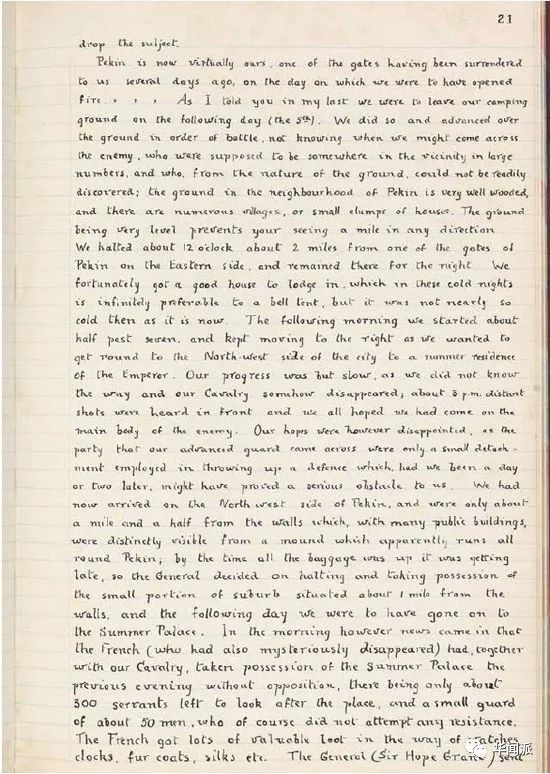 21
drop the subject.
Pekin is now virtually ours, one of the gates having been surrendered
to us several days ago, on the day on which we were to have opened
fire. , , , As I told you in my last we were to leave our camping
ground on the following day (the 5th). We did so and advanced over
the ground in order of battle, not knowing when we might come across
the enemy, who were supposed to be somewhere in the vicinity in large
numbers, and who, from the nature of the ground, could not be readily
discovered; the ground in the neighbourhood of Pekin is very well wooded,
and there are numerous villages, or small clumps of houses. The ground
being very level prevents your seeing a mile in any direction
We halted about 12 o'clock about 2 miles from one of the gates of
Pekin on the Eastern side, and remained there for the night. We
fortunately got a good house to lodge in, which in these cold nights
is infinitely preferable to a bell tent, but it was not nearly so
cold then as it is now. The following morning we started about
half past seven, and kept moving to the right as we wanted to
get round to the North-west side of the city to a summer residence
of the Emperor. Our progress was but slow, as we did not know
the way and our Cavalry somehow disappeared; about 3 p.m. distant
shots were heard in front and we all hoped we had come on the
main body of the enemy. Our hopes were however disappointed, as the
party that our advanced guard came across were only a small detach-
ment employed in throwing up a defence which, had we been a day
or two later, might have proved a serious obstacle to us. We had
now arrived on the North west side of Pekin, and were only about
a mile and a half from the walls which, with many public buildings,
were distinctly visible from a mound which apparently runs all
round Pekin; by the time all the baggage was up it was getting
late, so the General decided on halting and taking possession of
the small portion of suburb situated about 1 mile from the
walls, and the following day we were to have gone on to
the Summer Palace. In the morning however news came in that
the French (who had also mysteriously disappeared) had, together
with our Cavalry, taken possession of the Summer Palace the
previous evening without opposition, there being only about
300 servants left to look after the place, and a small guard
of about 50 men, who of course did not attempt any resistance.
The French got lots of valuable loot in the way of watches
clocks, fur coats, silks etc. The General (Sir Hope Grant) sent
华闻派